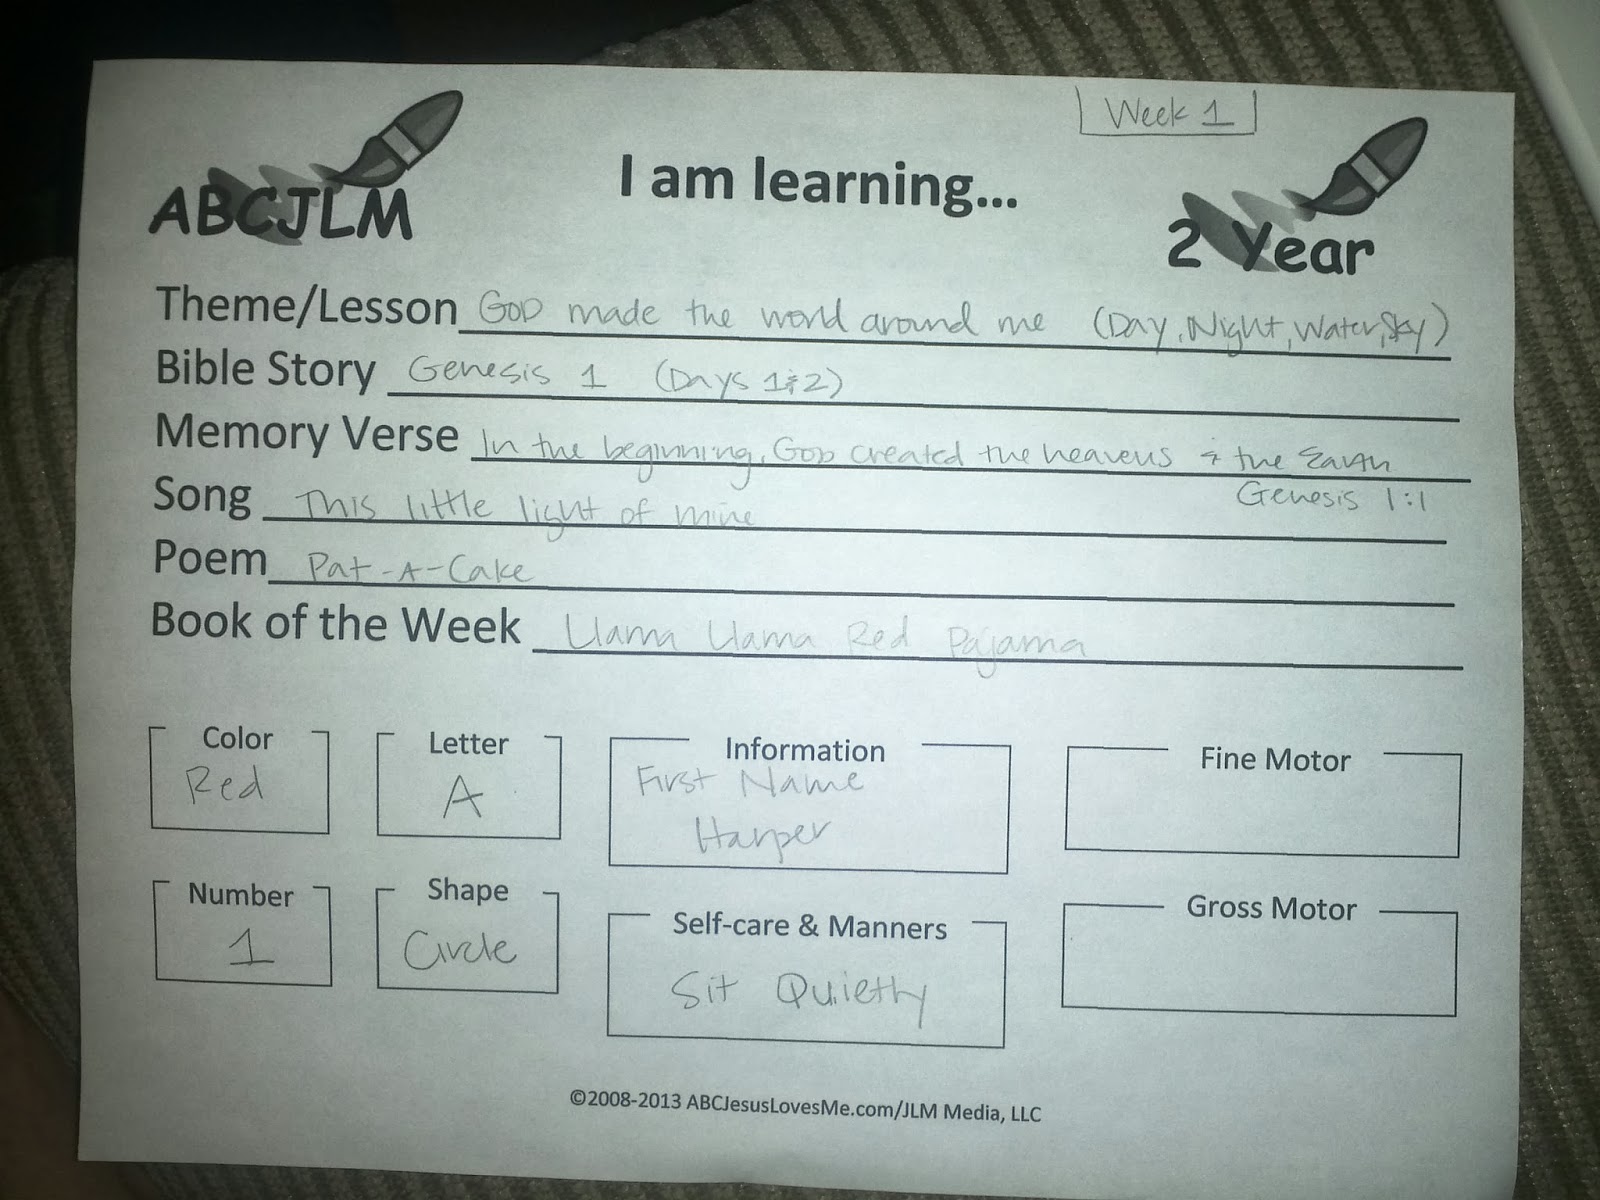 Week 1
ABCJLM
I am learning...
2 Year
Theme/Lesson God made the world around me (Day, Night, Water, Sky)
Bible Story Genesis 1 (Days 1 & 2)
Memory Verse In the beginning, God created the heavens & the Earth
Genesis 1:1
Song This little light of mine
Poem Pat-A-Cake
Book of the Week Llama Llama Red Pajama
Color
Red
Letter
A
Information
First Name
Harper
Fine Motor
Number
1
Shape
Circle
Self-care & Manners
Sit Quietly
Gross Motor
©2008-2013 ABCJesusLovesMe.com/JLM Media, LLC